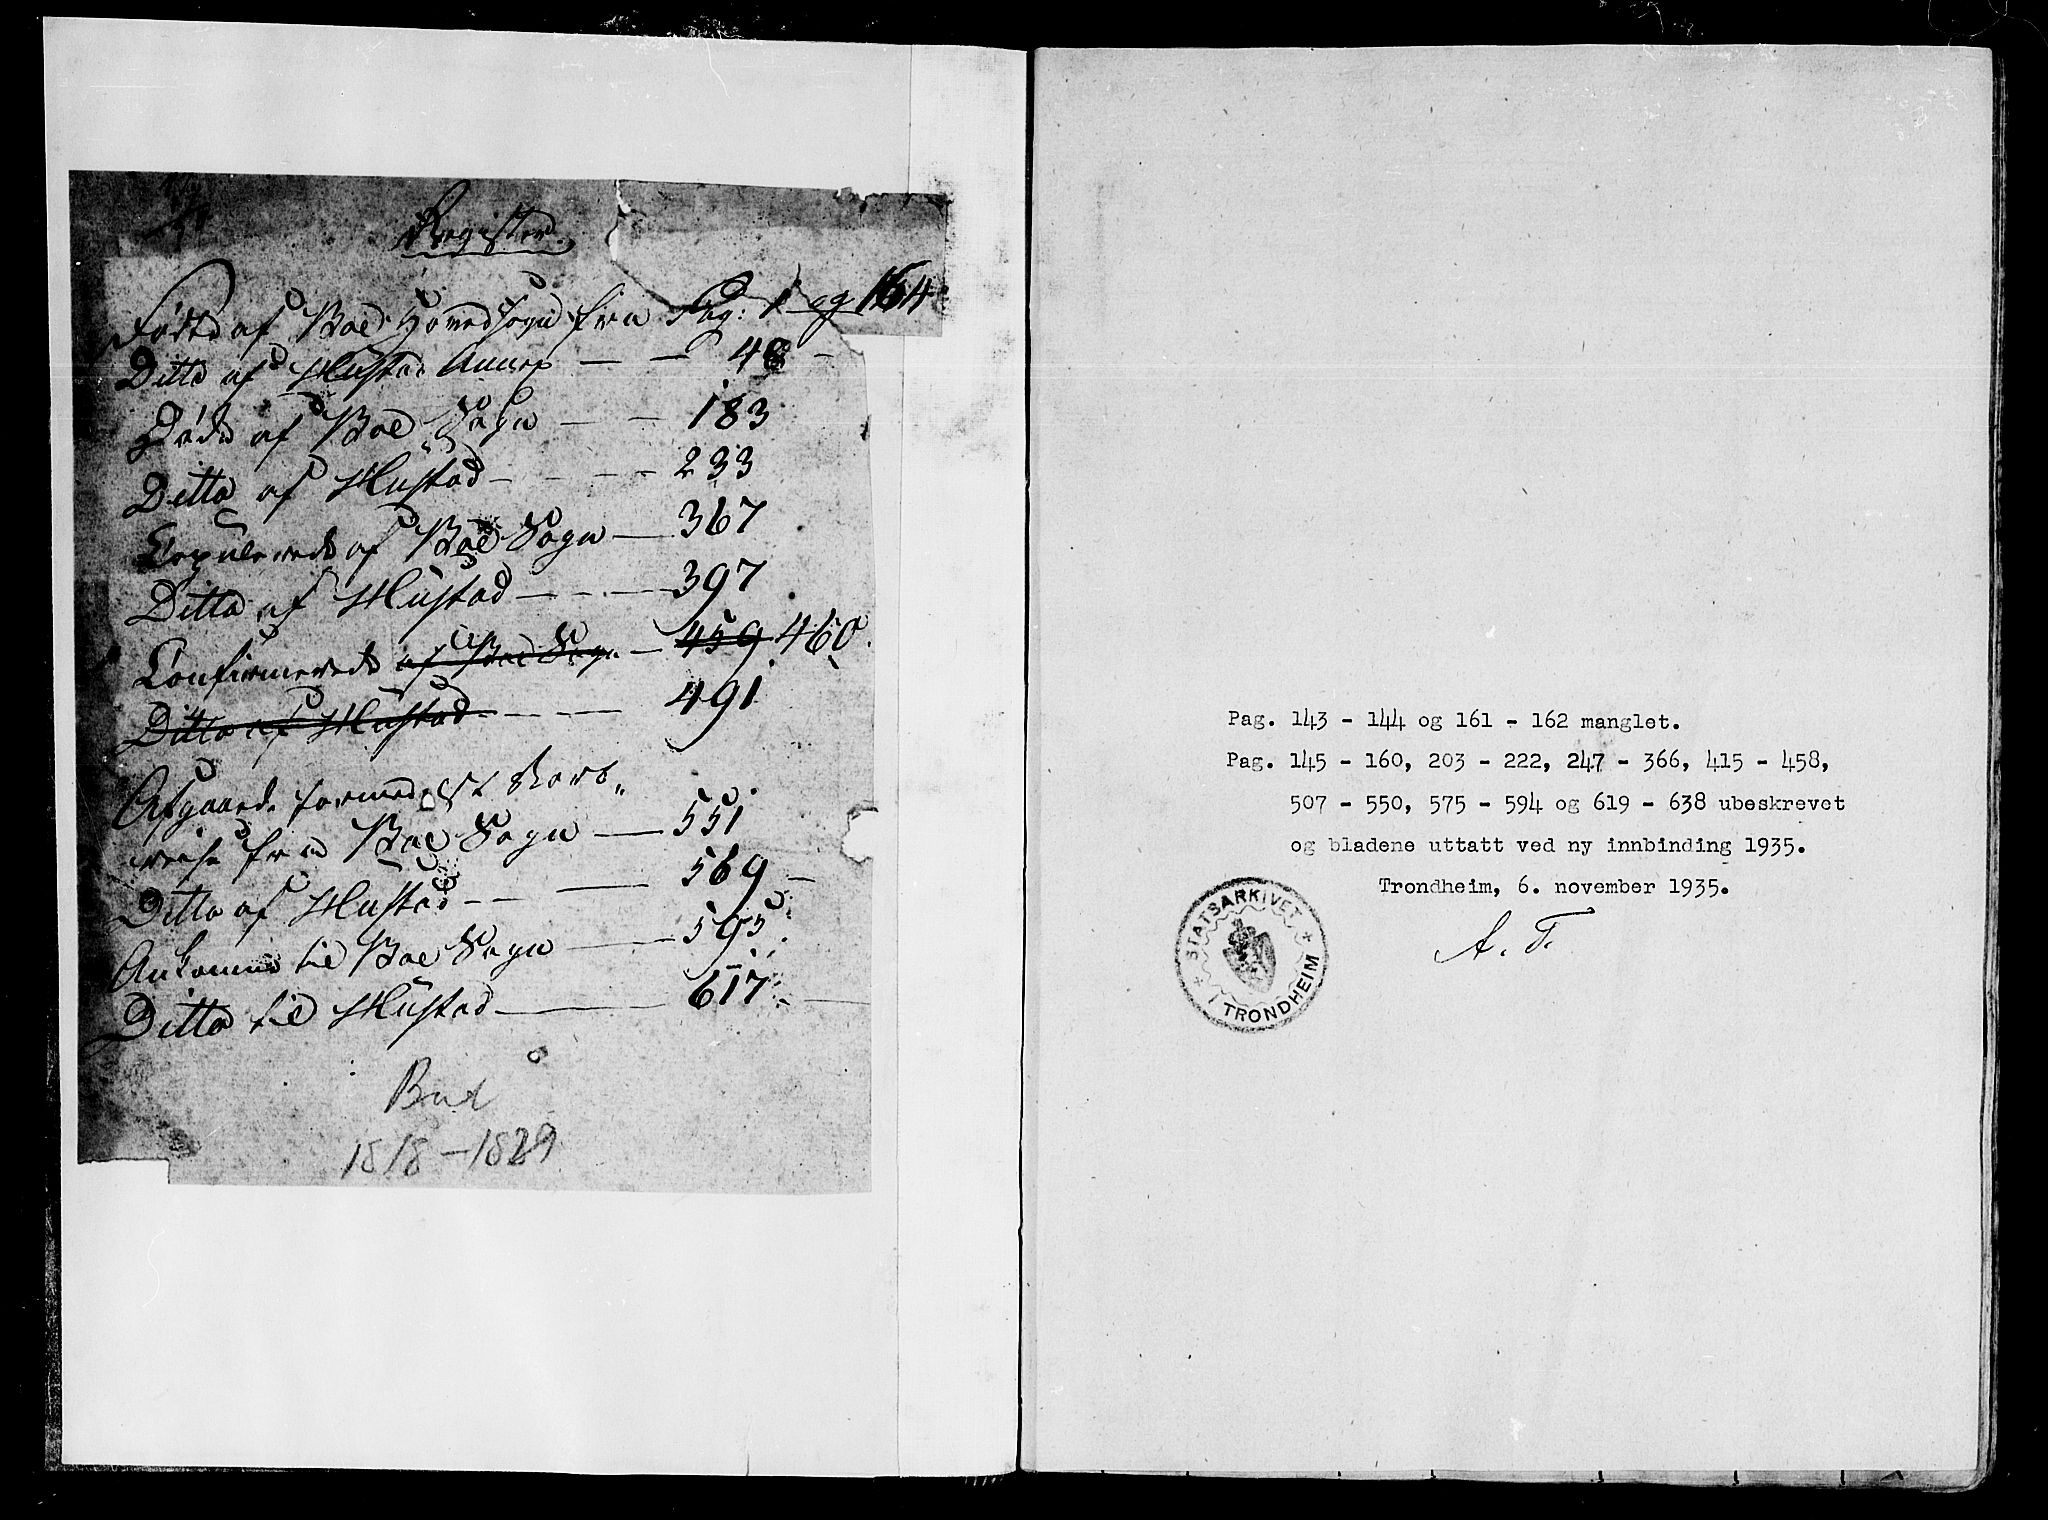 Register.
Födte af Boe Hovedsogn fra Pag: 1 og 164
Ditto af Hustad Annex — — 48 —
Döde af Boe Sogn — — 183
Ditto af Hustad — — — 233
Copulerede af Boe Sogn — 367
Ditto af Hustad — — — 397
Confirmerede af Boe Sogn — 459 460.
Ditto af Hustad — — — 491
Afgaaede formedelst Bort„
reise fra Boe Sogn — 551
Ditto af Hustad — — — 569 —
Ankomne til Boe Sogn — 595.
Ditto til Hustad — 617
Bud
1818 – 1829
Pag. 143 - 144 og 161 - 162 manglet.
Pag. 145 - 160, 203 - 222, 247 - 366, 415 - 458,
507 - 550, 575 - 594 og 619 - 638 ubeskrevet
og bladene uttatt ved ny innbinding 1935.
Trondheim, 6. november 1935.
A. T.
STATSARKIVET
I TRONDHEIM